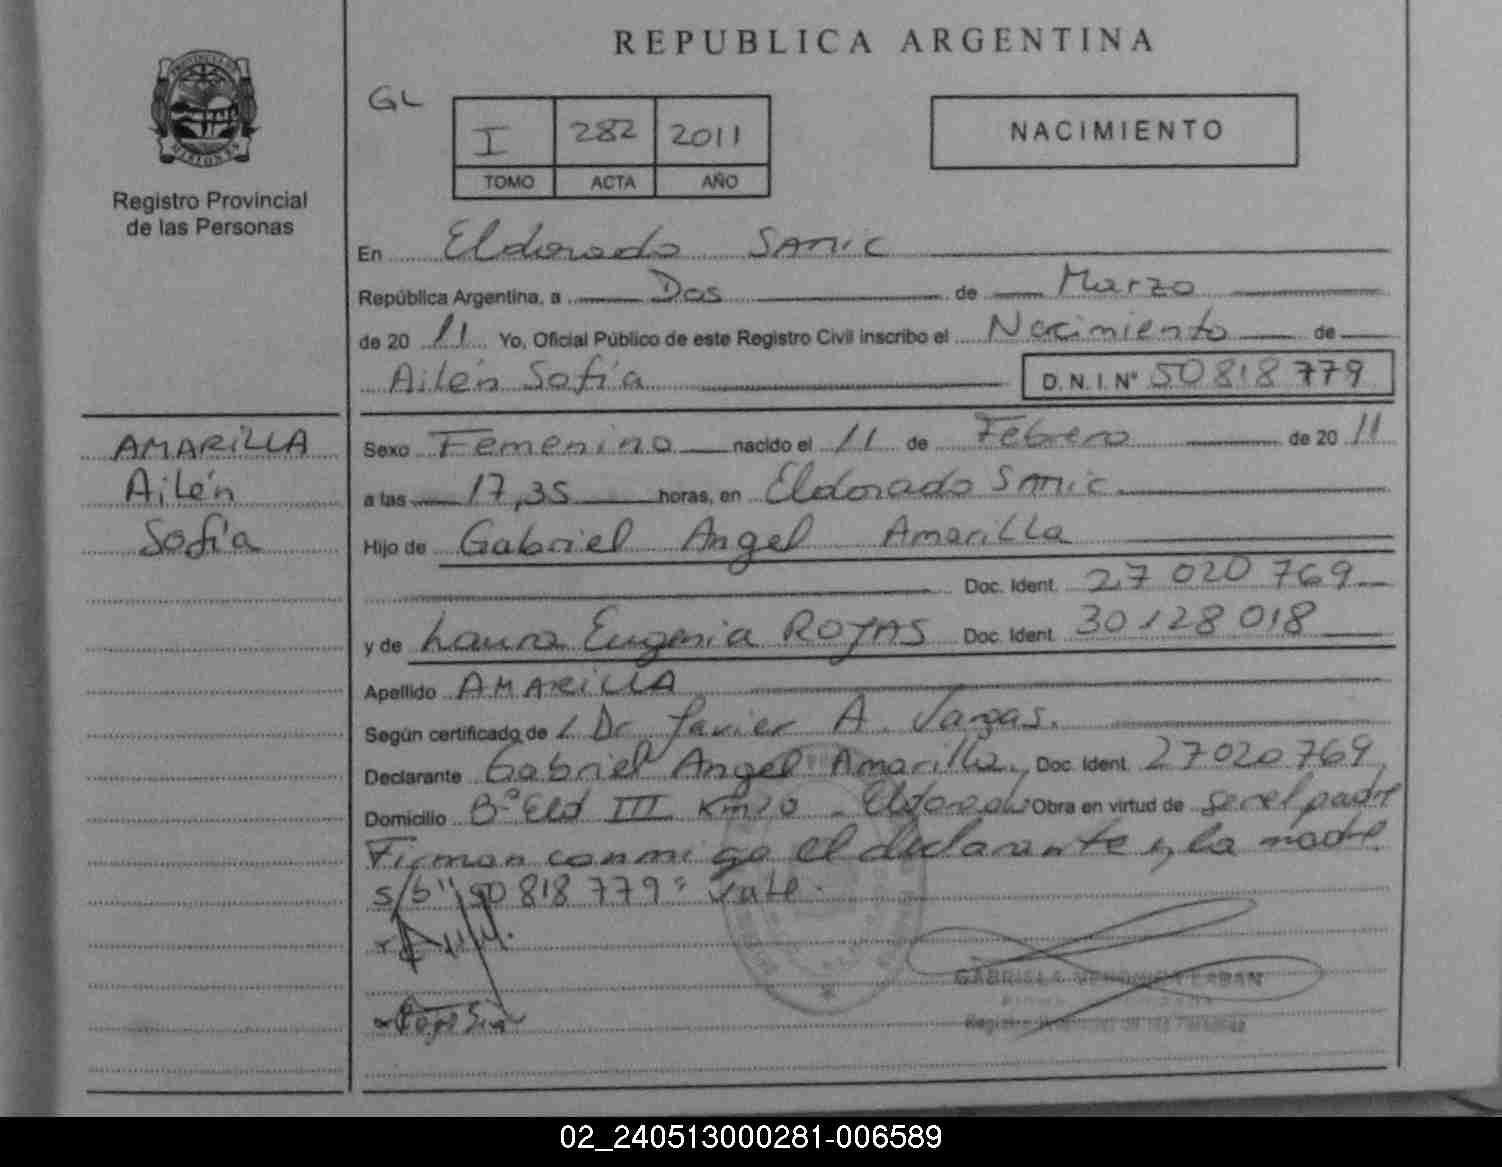 REPUBLICA ARGENTINA
PROVINCIA DE
MISIONES
Registro Provincial
de las Personas
GL
I 282 2011
TOMO ACTA AÑO
NACIMIENTO
En Eldorado
República Argentina, a Dos de Marzo
de 20 11 Yo, Oficial Público de este Registro Civil inscribo el Nacimiento de
Ailén Sofía D.N.I. Nº 50 818 779
AMARILLA
Ailén
Sofía
Sexo Femenino nacido el 11 de Febrero de 20 11
a las 17,35 horas, en Eldorado
Hijo de Gabriel Angel Amarilla
Doc. Ident. 27 020 769
y de Laura Eugenia ROJAS Doc. Ident. 30 128 018
Apellido AMARILLA
Según certificado de Dr Javier A. Vargas.
Declarante Gabriel Angel Amarilla, Doc. Ident. 27020769
Domicilio Bº Eld III Km20 - Eldorado Obra en virtud de ser el padre
Firman conmigo el declarante y la madre.
s/b "50 818 779" Vale.
GABRIELA VERONICA
02_240513000281-006589